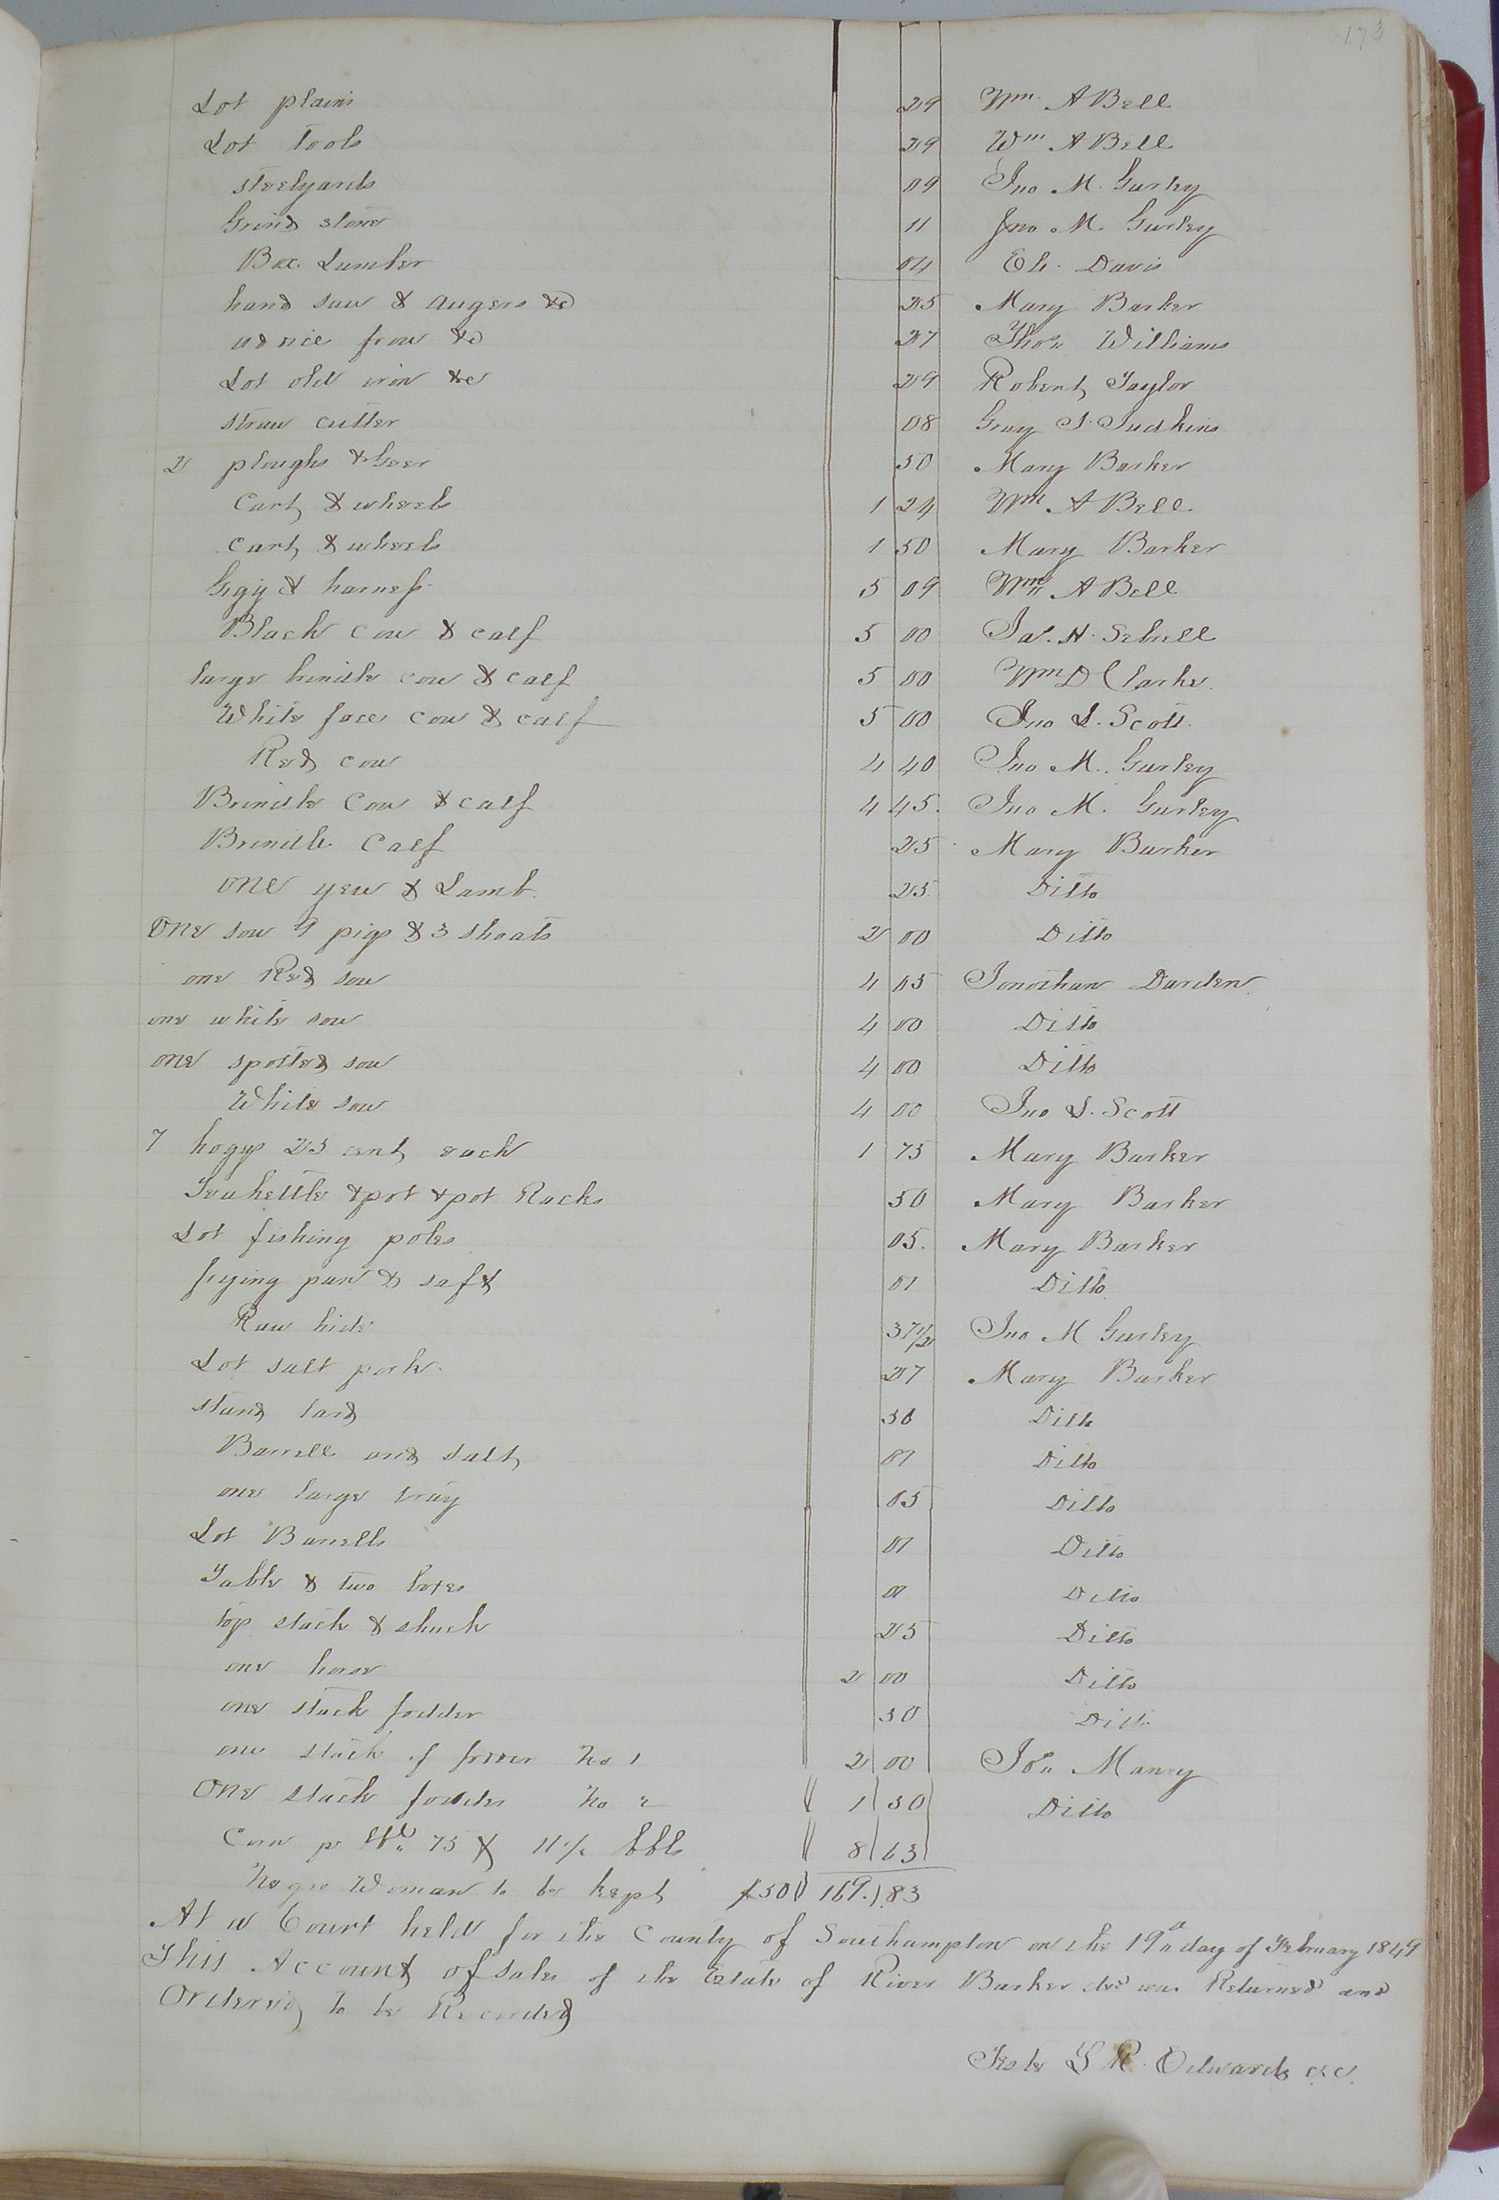 173
Lot plains 29 Wm. A Bell
Lot Tools 29 Wm A Bell
steelyards 09 Jno M. Gurley
Grind stone 11 Jno M. Gurley
Box Lumber 04 Eli Davis
hand saw & augers &c 25 Mary Barker
frow &c 27 Thos Williams
Lot old iron &c 29 Robert Taylor
straw cutter 08 Gray J. Judkins
2 ploughs & Geer 50 Mary Barker
Cart & wheels 1 24 Wm A Bell
Cart & wheels 1 50 Mary Barker
Gigg & harness 5 09 Wm A Bell
Black cow & calf 5 00 Jas. H. Sebrell
large brindle cow & calf 5 00 Wm D Clarke
White face cow & calf 5 00 Jno L. Scott
Red cow 4 40 Jno M. Gurley
Brindle Cow & calf 4 45. Jno M. Gurley
Brindle Calf 25 Mary Barker
one yew & Lamb 25 Ditto
One sow 9 pigs & 3 shoats 2 00 Ditto
one Red sow 4 05 Jonathan Darden
one white sow 4 00 Ditto
one spotted sow 4 00 Ditto
White sow 4 00 Jno L. Scott
7 hogs 25 cent each 1 75 Mary Barker
Teakettle & pot & pot Racks 50 Mary Barker
Lot fishing poles 05. Mary Barker
frying pan & 01 Ditto
Raw hide 37 1/2 Jno M Gurley
Lot salt pork 27 Mary Barker
stand lard 50 Ditto
Barrell and salt 01 Ditto
one large tray 05 Ditto
Lot Barrells 01 Ditto
Table & two boxes 01 Ditto
top stack & shuck 25 Ditto
one horse 2 00 Ditto
one stack fodder 50 Ditto
one stack of fodder No 1 2 00 Jos Manry
One stack fodder No 2 1 50 Ditto
Corn pr 75 & 11 1/2 bbls 8 63
Negro Woman to be kept 169.83
At a Court held for the County of Southampton on the 19th day of February 1849
This Account of sales of the Estate of River Barker decd was Returned and
Ordered to be Recorded
Teste L R. Edwards c.c.